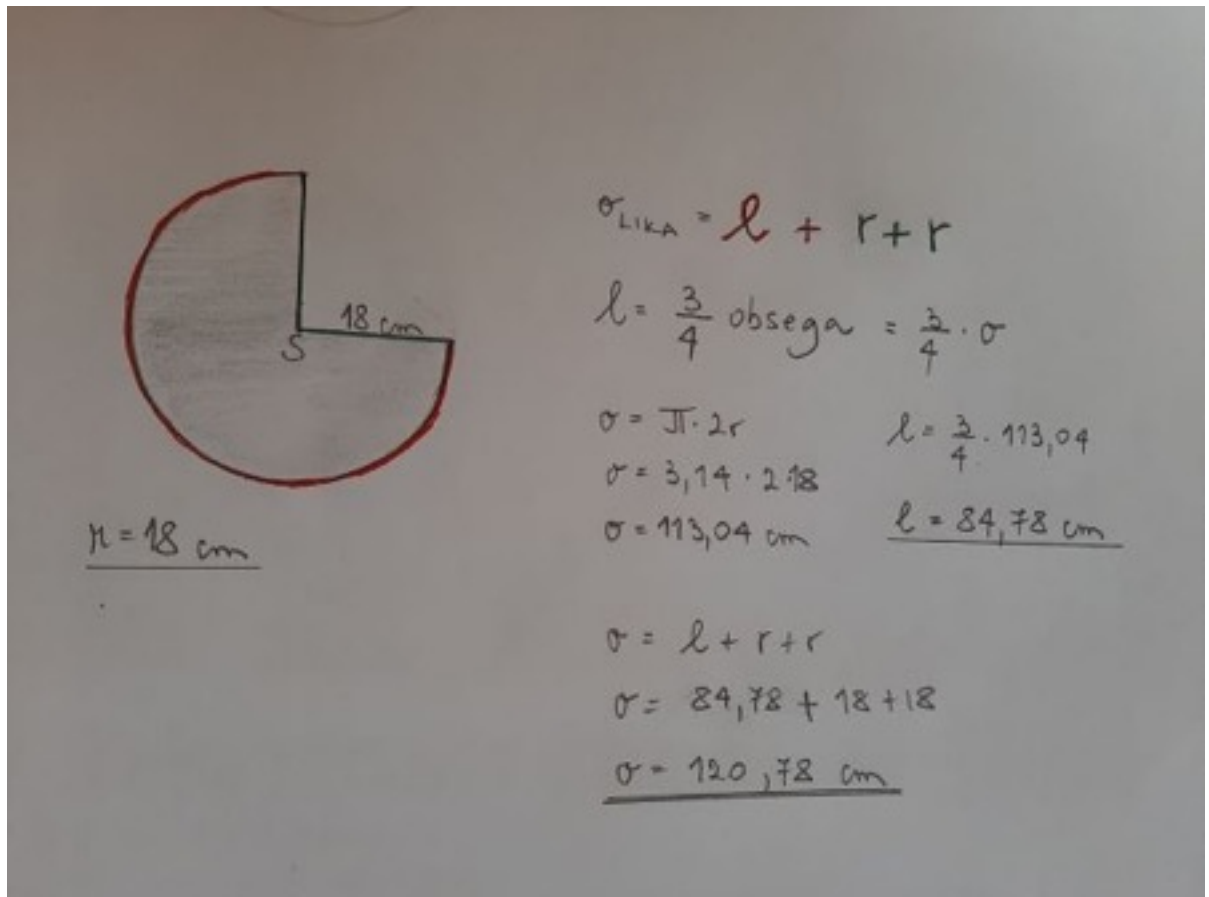 18 cm
S
r = 18 cm
σ LIKA = l + r + r
l = 3/4 obsega = 3/4 · σ
σ = π · 2r
σ = 3,14 · 2·18
σ = 113,04 cm
l = 3/4 · 113,04
l = 84,78 cm
σ = l + r + r
σ = 84,78 + 18 + 18
σ = 120,78 cm